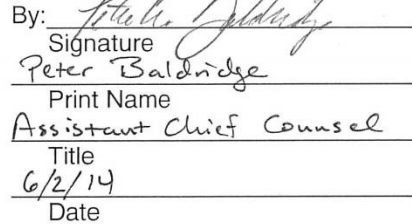 By: Peter Baldridge
Signature
Peter Baldridge
Print Name
Assistant Chief Counsel
Title
6/2/14
Date